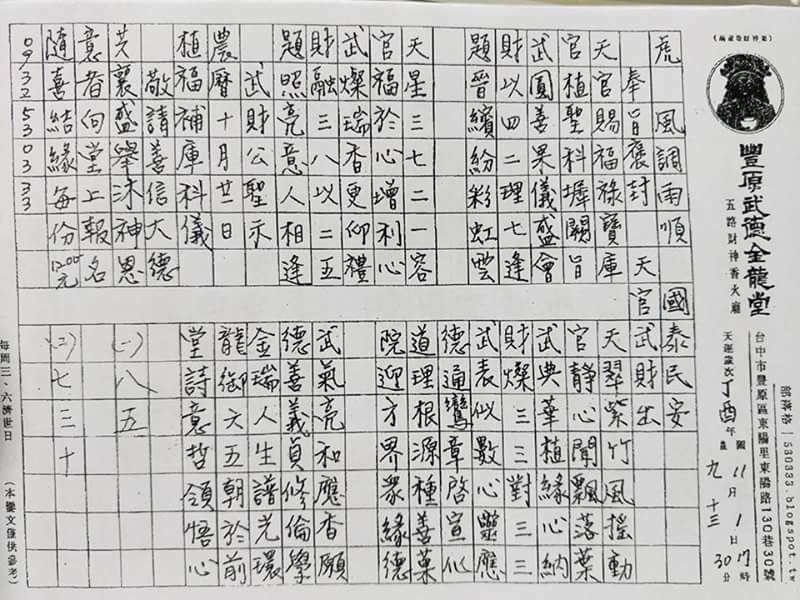 豐原武德金龍堂
五路財神香火廟
部落格/530333.blogspot.tw
台中市豐原區東陽里東陽路130巷30號
天運歲次丁酉年 國 11月1日17時30分
農 九 十三
虎
風調雨順 國泰民安
奉旨褒封 天官武財出
天官賜福祿寶庫
官植聖科墀關旨
武圓善果儀盛會
財以四二理七逢
題晉繽紛彩虹雲
天星三七二一容
官福於心增利心
武燦瑞香更仰禮
財融三八以二五
題照亮意人相逢
武財公聖示
農曆十月廿日
植福補庫科儀
敬請善信大德
共襄盛舉沐神恩
意者向堂上報名
隨喜結緣每份1200元
0932530333
天翠紫竹風搖動
官靜心聞飄落葉
武典華植緣心納
財燦三三對三三
武表似數心靈應
德通鸞章啓宣化
道理根源種善葉
院迎方界眾緣德
武氣亮和應香願
德善義貞修倫學
金瑞人生譜光環
龍御六五朝於前
堂詩意哲領悟心
(一)八五
(二)七三十
每周三、六濟世日
(本鸞文僅供參考)